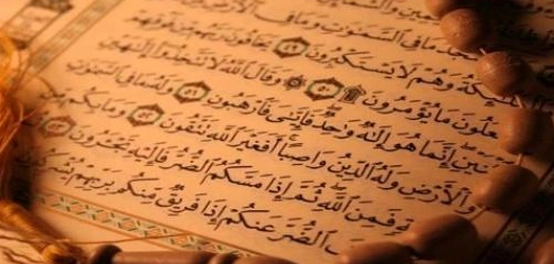 يسجد ما في السموت وما في
ملئكة وهم لا يستكبرون ٤٩ يخافون ربهم من فوقهم
علون ما يؤمرون ۩ ٥٠ ۞ وقال الله لا تتخذوا إلهين
ثنين إنما هو إله وحد فإيي فارهبون ٥١ وله ما في السموت
والأرض وله الدين واصبا أفغير الله تتقون ٥٢ وما بكم من
ة فمن الله ثم إذا مسكم الضر فإليه تجءرون ٥٣
الضر عنكم إذا فريق منكم بربهم يشركون